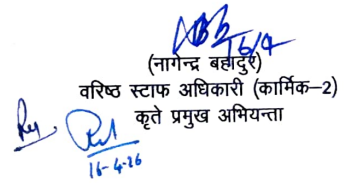 16/4
(नागेन्द्र बहादुर)
वरिष्ठ स्टाफ अधिकारी (कार्मिक–2)
कृते प्रमुख अभियन्ता
16-4-26